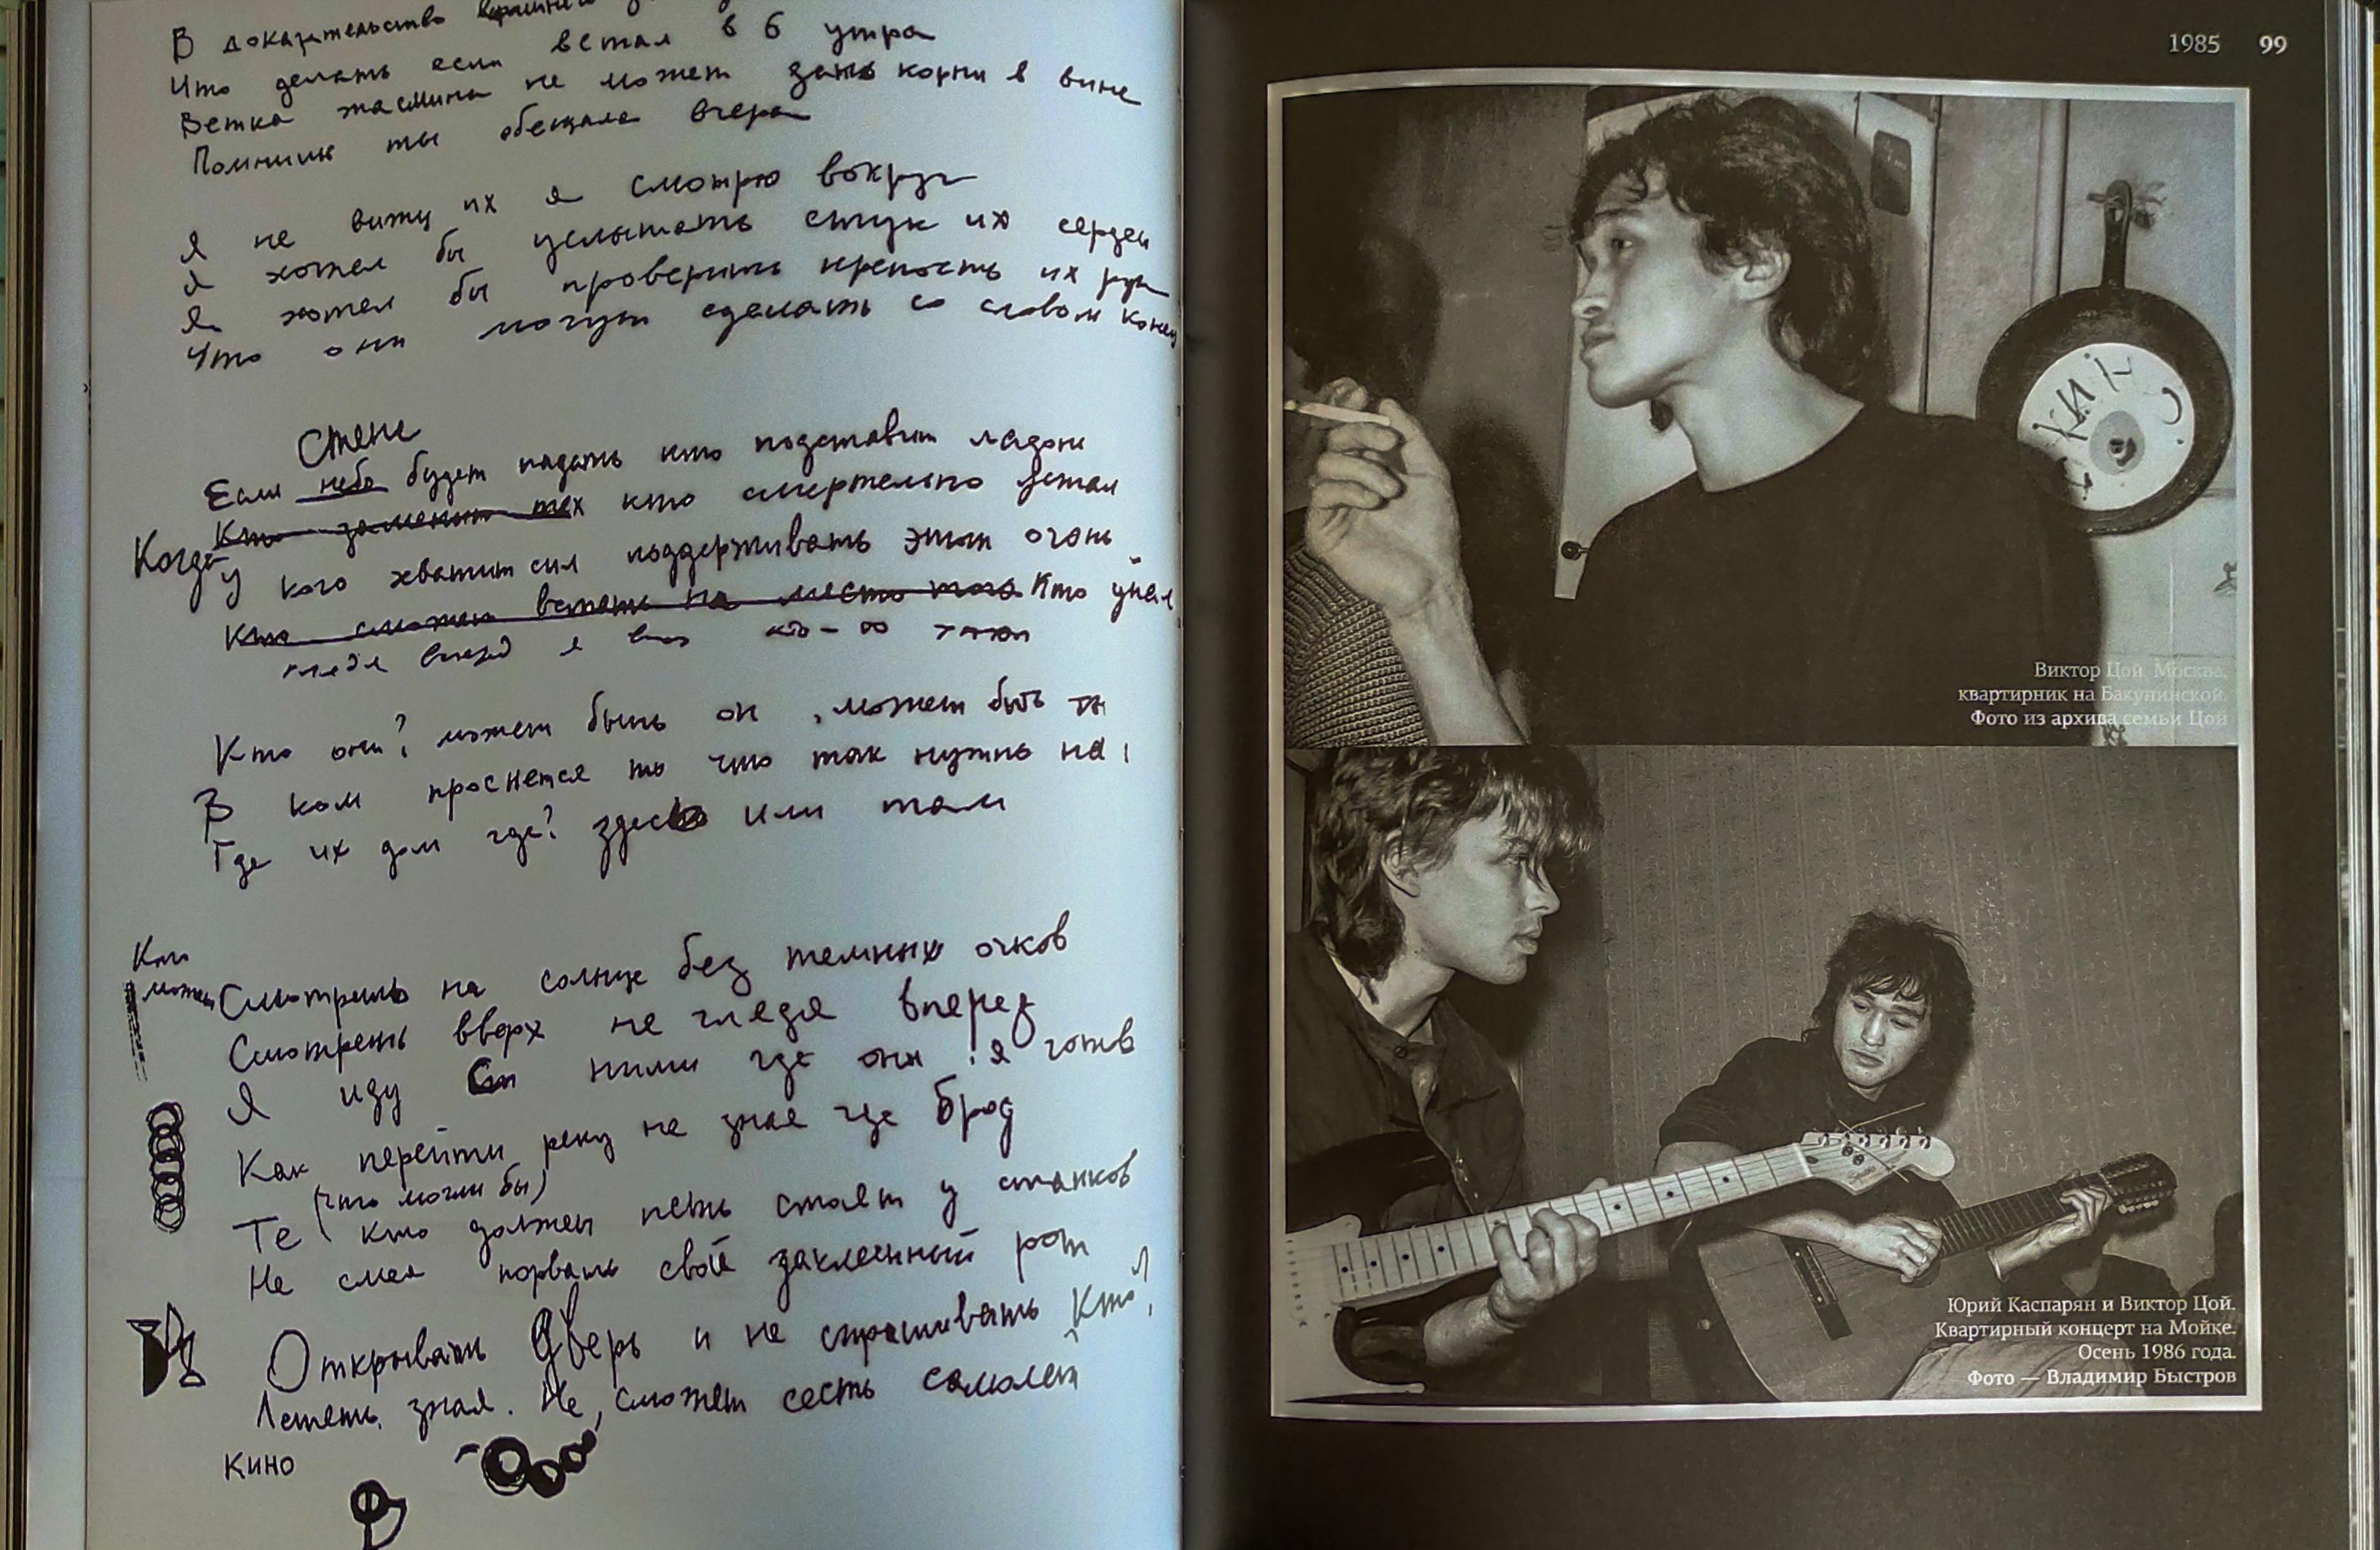 В доказательство
Что делать если встал в 6 утра
Ветка жасмина не может дать корни в вине
Помнишь ты обещала вчера
Я не вижу их я смотрю вокруг
Я хотел бы услышать стук их сердец
Я хотел бы проверить крепость их рук
Что они могут сделать со словом конец
Стене
Если небо будет падать кто подставит ладони
Кто заменит тех кто смертельно устал
Когда
У кого хватит сил поддерживать этот огонь
Кто сможет встать на место того Кто упал
глядя вперед я
Кто они? может быть он, может быть ты
В ком проснется то что так нужно на
Где их дом где? здесь или там
Кто
может
Смотреть на солнце без темных очков
Смотреть вверх не глядя вперед
Я иду с ними где они я готов
Как перейти реку не зная где брод
(что могли бы)
Те кто должен петь стоят у станков
Не смея порвать свой заклеенный рот
Открывать дверь и не спрашивать Кто
Лететь, зная. Не, сможет сесть самолет
КИНО
1985 99
КИНО
Виктор Цой. Москва,
квартирник на Бакунинской.
Фото из архива семьи Цой
Squier
Юрий Каспарян и Виктор Цой.
Квартирный концерт на Мойке.
Осень 1986 года.
Фото — Владимир Быстров